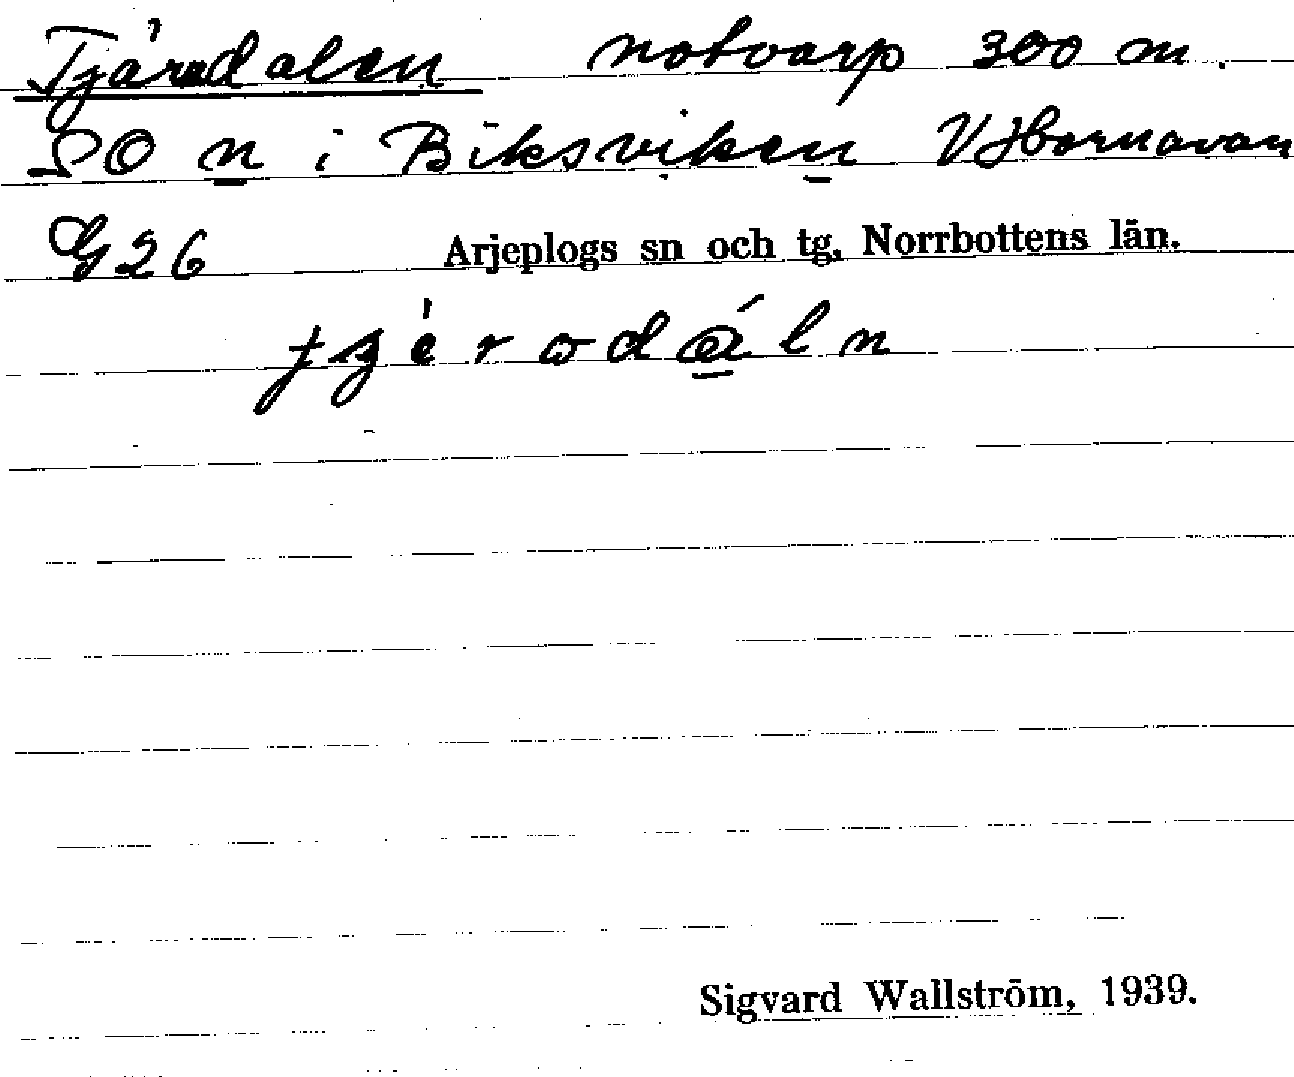 Tjärudalen notvarp 300 m.
SO n i Biksviken V Hornavan
G26 Arjeplogs sn och tg, Norrbottens län.
Sigvard Wallström, 1939.